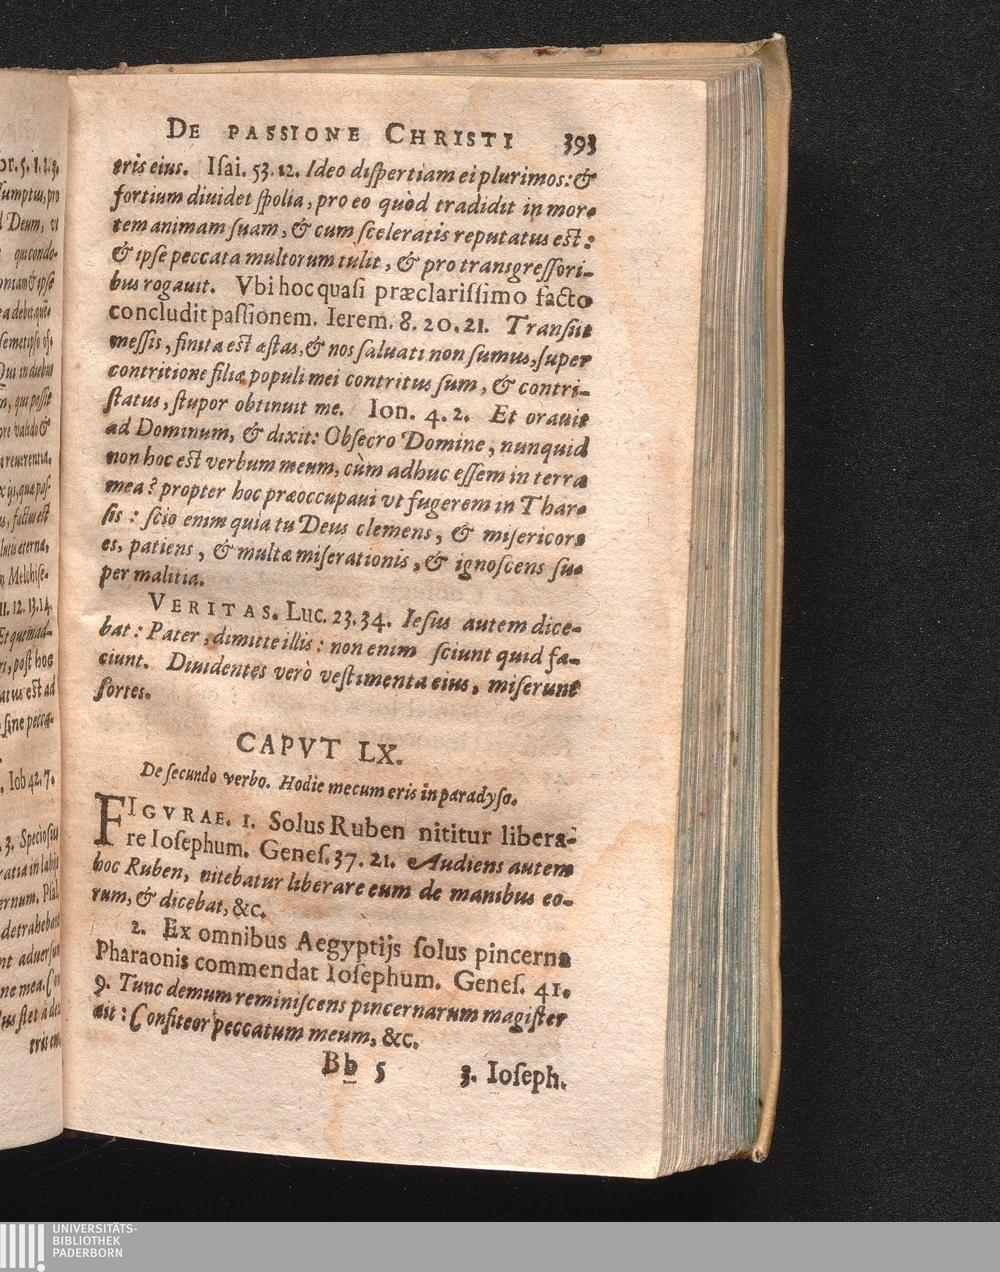 or. 5. 1. 2. 3.
sumptus, pro
Deum, vt
qui condo-
oniam & ipse
semetipso of-
Qui in diebus
qui possit
ore valido &
reuerentia,
factus est
lutis æterna,
Melchise-
11. 12. 13. 14.
Et quemad-
post hoc
atus est ad
sine pecca-
Iob 42. 7.
3. Speciosus
ratia in labijs
ernum. Psal.
detrahebant
nt aduersum
ne mea. Con
ſtet à dex
tris eius
DE PASSIONE CHRISTI 393
tris eius. Iſai. 53. 12. Ideo diſpertiam ei plurimos: &
fortium diuidet ſpolia, pro eo quòd tradidit in mor-
tem animam ſuam, & cum ſceleratis reputatus eſt:
& ipſe peccata multorum tulit, & pro transgreſſori-
bus rogauit. Vbi hoc quaſi præclariſſimo facto
concludit paſſionem. Ierem. 8. 20. 21. Tranſiit
meſſis, finita eſt æſtas, & nos ſaluati non ſumus, ſuper
contritione filiæ populi mei contritus ſum, & contri-
ſtatus, ſtupor obtinuit me. Ion. 4. 2. Et orauit
ad Dominum, & dixit: Obſecro Domine, nunquid
non hoc eſt verbum meum, cùm adhuc eſſem in terra
mea? propter hoc præoccupaui vt fugerem in Thar-
ſis: ſcio enim quia tu Deus clemens, & miſericors
es, patiens, & multæ miſerationis, & ignoſcens ſu-
per malitia.
VERITAS. Luc. 23. 34. Ieſus autem dice-
bat: Pater, dimitte illis: non enim ſciunt quid fa-
ciunt. Diuidentes verò veſtimenta eius, miſerunt
ſortes.
CAPVT LX.
De ſecundo verbo. Hodie mecum eris in paradyſo.
FIGVRAE. 1. Solus Ruben nititur libera-
re Ioſephum. Geneſ. 37. 21. Audiens autem
hoc Ruben, nitebatur liberare eum de manibus eo-
rum, & dicebat, &c.
2. Ex omnibus Aegyptijs ſolus pincerna
Pharaonis commendat Ioſephum. Geneſ. 41.
9. Tunc demum reminiſcens pincernarum magiſter
ait: Confiteor peccatum meum, &c.
Bb 5 3. Ioſeph.
UNIVERSITÄTS-
BIBLIOTHEK
PADERBORN